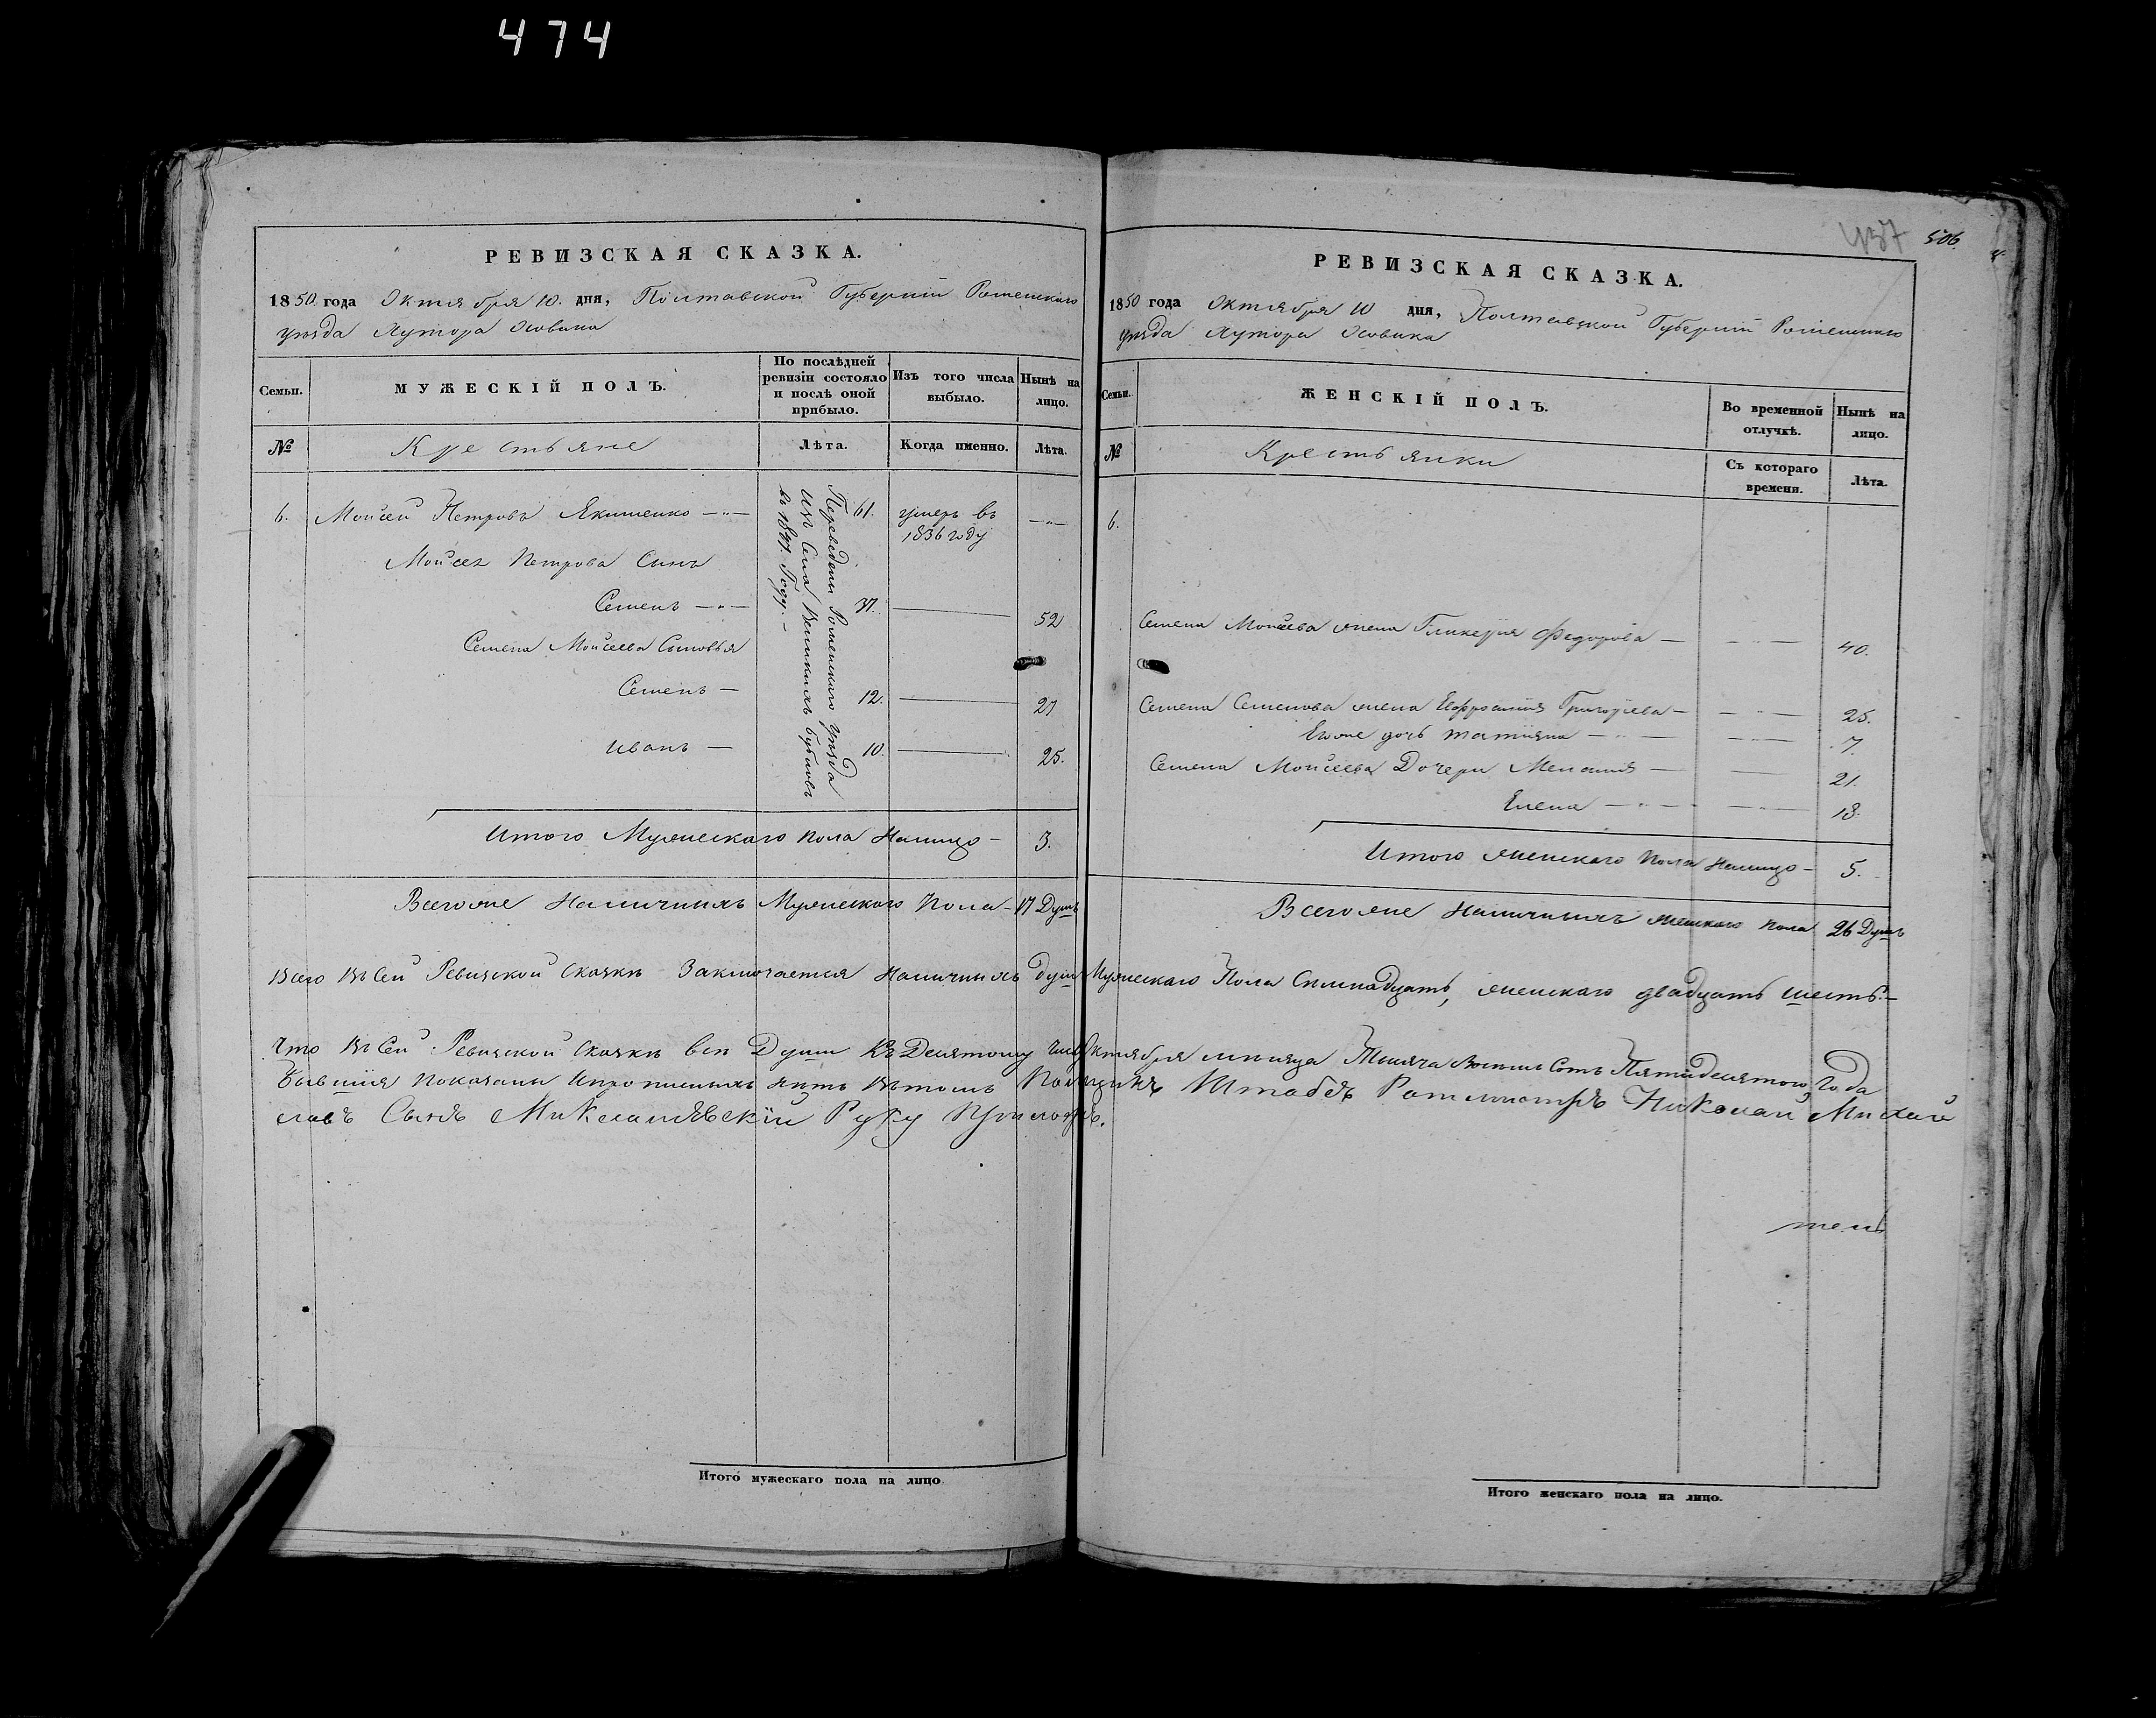 474
РЕВИЗСКАЯ СКАЗКА.
1850 года Октября 10. дня, Полтавской Губерніи Роменскаго
уѣзда Хутора Осовика
Семьи.
МУЖЕСКІЙ ПОЛЪ.
По послѣдней ревизіи состояло и послѣ оной прибыло.
Изъ того числа выбыло.
Нынѣ на лицо.
№
Крестьяне
Лѣта.
Когда именно.
Лѣта.
6. Мойсей Петровъ Якименко 61. умеръ въ 1836 году
Мойсея Петрова Сынъ
Семенъ 37. 52
Семена Мойсеева Сыновья
Семенъ 12. 27
Иванъ 10. 25.
Переведены Роменскаго уѣзда
Изъ Села Великихъ Бубновъ
Году.
Итого Мужескаго пола Налицо 3.
Всегоже Наличныхъ Мужескаго Пола 17 Душъ
РЕВИЗСКАЯ СКАЗКА.
437 506.
1850 года Октября 10 дня, Полтавской Губерніи Роменскаго
уѣзда Хутора Осовика
Семьи.
ЖЕНСКІЙ ПОЛЪ.
Во временной отлучкѣ.
Нынѣ на лицо.
№
Крестьянки
Съ котораго времени.
Лѣта.
6.
Семена Мойсеева жена Гликерія Федорова 40.
Семена Семенова жена Ефросинія Григорьева 25.
Егоже дочь Татіяна 7.
Семена Мойсеева Дочери Меланія 21.
Елена 18.
Итого женскаго Пола Налицо 5.
Всегоже Наличныхъ женскаго пола 26 Душъ
Всего Въ Сей Ревизской Сказкѣ Заключается Наличныхъ душъ Мужескаго Пола Семнадцать, женскаго двадцать шесть.
Что Въ Сей Ревизской Сказкѣ всѣ Души Къ Десятому Числу Октября мѣсяца Тысяча Восемь Сотъ Пятидесятого Года
бывшія Показаны Ипрописныхъ нѣтъ Въ томъ Помѣщикъ Штабсъ Ротмистръ Николай Михай
ловъ Сынъ Миклашевскій Руку Приложилъ.
Итого мужескаго пола на лицо
Итого женскаго пола на лицо.